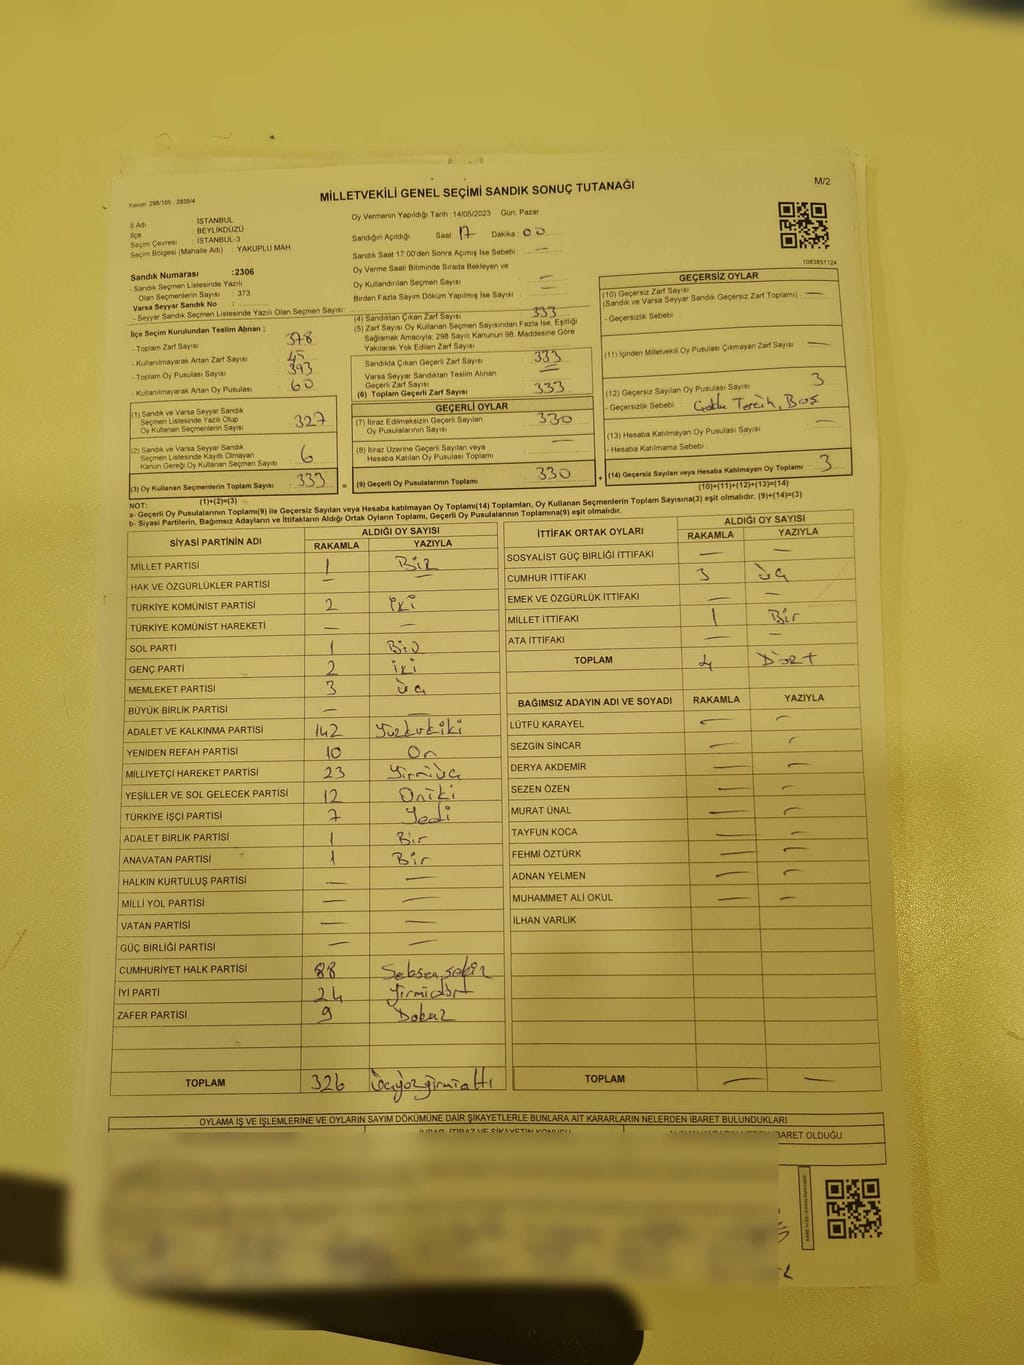 MİLLETVEKİLİ GENEL SEÇİMİ SANDIK SONUÇ TUTANAĞI
M/2
Kanun: 298/105 , 2839/4
İl Adı : İSTANBUL
İlçe : BEYLİKDÜZÜ
Seçim Çevresi : İSTANBUL-3
Seçim Bölgesi (Mahalle Adı) : YAKUPLU MAH
Oy Vermenin Yapıldığı Tarih :14/05/2023 Gün: Pazar
Sandığın Açıldığı Saat: 17 Dakika: 00
Sandık Saat 17:00'den Sonra Açımış İse Sebebi : —
Oy Verme Saati Bitiminde Sırada Bekleyen ve
Oy Kullandırılan Seçmen Sayısı : —
Birden Fazla Sayım Döküm Yapılmış İse Sayısı : —
1083851124
Sandık Numarası :2306
- Sandık Seçmen Listesinde Yazılı
Olan Seçmenlerin Sayısı : 373
Varsa Seyyar Sandık No :
- Seyyar Sandık Seçmen Listesinde Yazılı Olan Seçmen Sayısı:
İlçe Seçim Kurulundan Teslim Alınan ;
- Toplam Zarf Sayısı 378
- Kullanılmayarak Artan Zarf Sayısı 45
- Toplam Oy Pusulası Sayısı 393
- Kullanılmayarak Artan Oy Pusulası 60
(1) Sandık ve Varsa Seyyar Sandık
Seçmen Listesinde Yazılı Olup
Oy Kullanan Seçmenlerin Sayısı 327
(2) Sandık ve Varsa Seyyar Sandık
Seçmen Listesinde Kayıtlı Olmayan
Kanun Gereği Oy Kullanan Seçmen Sayısı 6
(3) Oy Kullanan Seçmenlerin Toplam Sayısı 333
(1)+(2)=(3)
(4) Sandıktan Çıkan Zarf Sayısı 333
(5) Zarf Sayısı Oy Kullanan Seçmen Sayısından Fazla İse, Eşitliği
Sağlamak Amacıyla; 298 Sayılı Kanunun 98. Maddesine Göre
Yakılarak Yok Edilen Zarf Sayısı :
Sandıkta Çıkan Geçerli Zarf Sayısı 333
Varsa Seyyar Sandıktan Teslim Alınan
Geçerli Zarf Sayısı —
(6) Toplam Geçerli Zarf Sayısı 333
GEÇERLİ OYLAR
(7) İtiraz Edilmeksizin Geçerli Sayılan
Oy Pusulalarının Sayısı 330
(8) İtiraz Üzerine Geçerli Sayılan veya
Hesaba Katılan Oy Pusulası Toplamı —
(9) Geçerli Oy Pusulalarının Toplamı 330
GEÇERSİZ OYLAR
(10) Geçersiz Zarf Sayısı
(Sandık ve Varsa Seyyar Sandık Geçersiz Zarf Toplamı) : —
- Geçersizlik Sebebi :
(11) İçinden Milletvekili Oy Pusulası Çıkmayan Zarf Sayısı : —
(12) Geçersiz Sayılan Oy Pusulası Sayısı 3
- Geçersizlik Sebebi : Çoklu Tercih, Boş
(13) Hesaba Katılmayan Oy Pusulası Sayısı : —
- Hesaba Katılmama Sebebi :
(14) Geçersiz Sayılan veya Hesaba Katılmayan Oy Toplamı 3
(10)+(11)+(12)+(13)=(14)
NOT:
a- Geçerli Oy Pusulalarının Toplamı(9) ile Geçersiz Sayılan veya Hesaba katılmayan Oy Toplamı(14) Toplamları, Oy Kullanan Seçmenlerin Toplam Sayısına(3) eşit olmalıdır. (9)+(14)=(3)
b- Siyasi Partilerin, Bağımsız Adayların ve İttifakların Aldığı Ortak Oyların Toplamı, Geçerli Oy Pusulalarının Toplamına(9) eşit olmalıdır.
SİYASİ PARTİNİN ADI ALDIĞI OY SAYISI
RAKAMLA YAZIYLA
MİLLET PARTİSİ 1 Bir
HAK VE ÖZGÜRLÜKLER PARTİSİ — —
TÜRKİYE KOMÜNİST PARTİSİ 2 iki
TÜRKİYE KOMÜNİST HAREKETİ — —
SOL PARTİ 1 Bir
GENÇ PARTİ 2 iki
MEMLEKET PARTİSİ 3 üç
BÜYÜK BİRLİK PARTİSİ — —
ADALET VE KALKINMA PARTİSİ 142 Yüzkırkiki
YENİDEN REFAH PARTİSİ 10 On
MİLLİYETÇİ HAREKET PARTİSİ 23 Yirmiüç
YEŞİLLER VE SOL GELECEK PARTİSİ 12 Oniki
TÜRKİYE İŞÇİ PARTİSİ 7 Yedi
ADALET BİRLİK PARTİSİ 1 Bir
ANAVATAN PARTİSİ 1 Bir
HALKIN KURTULUŞ PARTİSİ — —
MİLLİ YOL PARTİSİ — —
VATAN PARTİSİ — —
GÜÇ BİRLİĞİ PARTİSİ — —
CUMHURİYET HALK PARTİSİ 88 Seksensekiz
İYİ PARTİ 24 Yirmidört
ZAFER PARTİSİ 9 Dokuz
TOPLAM 326 Üçyüzyirmialtı
İTTİFAK ORTAK OYLARI ALDIĞI OY SAYISI
RAKAMLA YAZIYLA
SOSYALİST GÜÇ BİRLİĞİ İTTİFAKI — —
CUMHUR İTTİFAKI 3 üç
EMEK VE ÖZGÜRLÜK İTTİFAKI — —
MİLLET İTTİFAKI 1 Bir
ATA İTTİFAKI — —
TOPLAM 4 Dört
BAĞIMSIZ ADAYIN ADI VE SOYADI RAKAMLA YAZIYLA
LÜTFÜ KARAYEL — —
SEZGİN SİNCAR — —
DERYA AKDEMİR — —
SEZEN ÖZEN — —
MURAT ÜNAL — —
TAYFUN KOCA — —
FEHMİ ÖZTÜRK — —
ADNAN YELMEN — —
MUHAMMET ALİ OKUL — —
İLHAN VARLIK
TOPLAM — —
OYLAMA İŞ VE İŞLEMLERİNE VE OYLARIN SAYIM DÖKÜMÜNE DAİR ŞİKAYETLERLE BUNLARA AİT KARARLARIN NELERDEN İBARET BULUNDUKLARI
İTİRAZ VE ŞİKAYETİN KONUSU
İBARET OLDUĞU